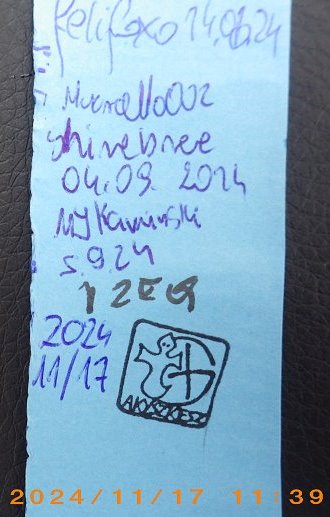 felifoxo 14.08.24
Marcello002
shirebree
04.09. 2024
MJKamiński
5.9.24
2024
11/17
2024/11/17 11:39